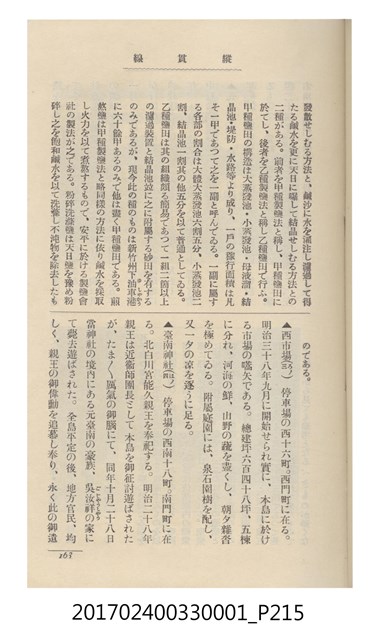 縱貫線
發散せしむる方法と、鹹沙に水を灌注し濾過して得
たる鹹水を更に天日に曝して結晶せしむる方法との
二種がある。前者を甲種製鹽法と稱し、甲種鹽田に
於てし、後者を乙種製鹽法と稱し乙種鹽田で行ふ。
甲種鹽田の構造は大蒸發池・小蒸發池・母液溜・結
晶池・堤防・水路等より成り、一戸の營行面積は凡
そ一甲であつて之を一副と呼んでゐる。一副に屬す
る各部の割合は大體大蒸發池六割五分、小蒸發池二
割、結晶池一割其の他五分を以て普通としてゐる。
乙種鹽田は其の組織頗る簡易であつて一組二個以上
の濾過裝置と結晶池竝に之に附屬する砂田を有する
のみであるが、現今此の種のものは新竹州下油車港
に六十餘甲あるのみで他は盡く甲種鹽田である。煎
熬鹽は甲種法と略同樣の方法に依り鹹水を採取
し火力を以て煮熬するもので、安平に於ける製鹽會
社の製法が之である。粉碎洗滌鹽は天日鹽を豫め粉
碎し之を飽和鹹水を以て洗滌し不淨物を除去したも
のである。
▲西市場 停車場の西十六町。西門町に在る。
明治三十八年九月に開始せられ實に、本島に於け
る市場の嚆矢である。總建坪六百四十八坪、五棟
に分れ、河海の鮮、山野の蔬を蓋くし、朝夕雜沓
を極めてゐる。附屬庭園には、泉石園樹を配し、
又一夕の凉を逐うに足る。
▲臺南神社 停車場の西南十八町。南門町に在
る。北白川宮能久親王を奉祀する。明治二十八年
親王は近衞師團長として本島を御征討遊ばされた
が、たまく厲氣の御腦にて、同年十月二十八日
當神社の境內にある元臺南の豪族、吳汝祥の家に
て薨去遊ばされた。全島平定の後、地方官民、均
しく、親王の御偉勳を追慕し奉り、永く此の御遺
163
201702400330001_P215